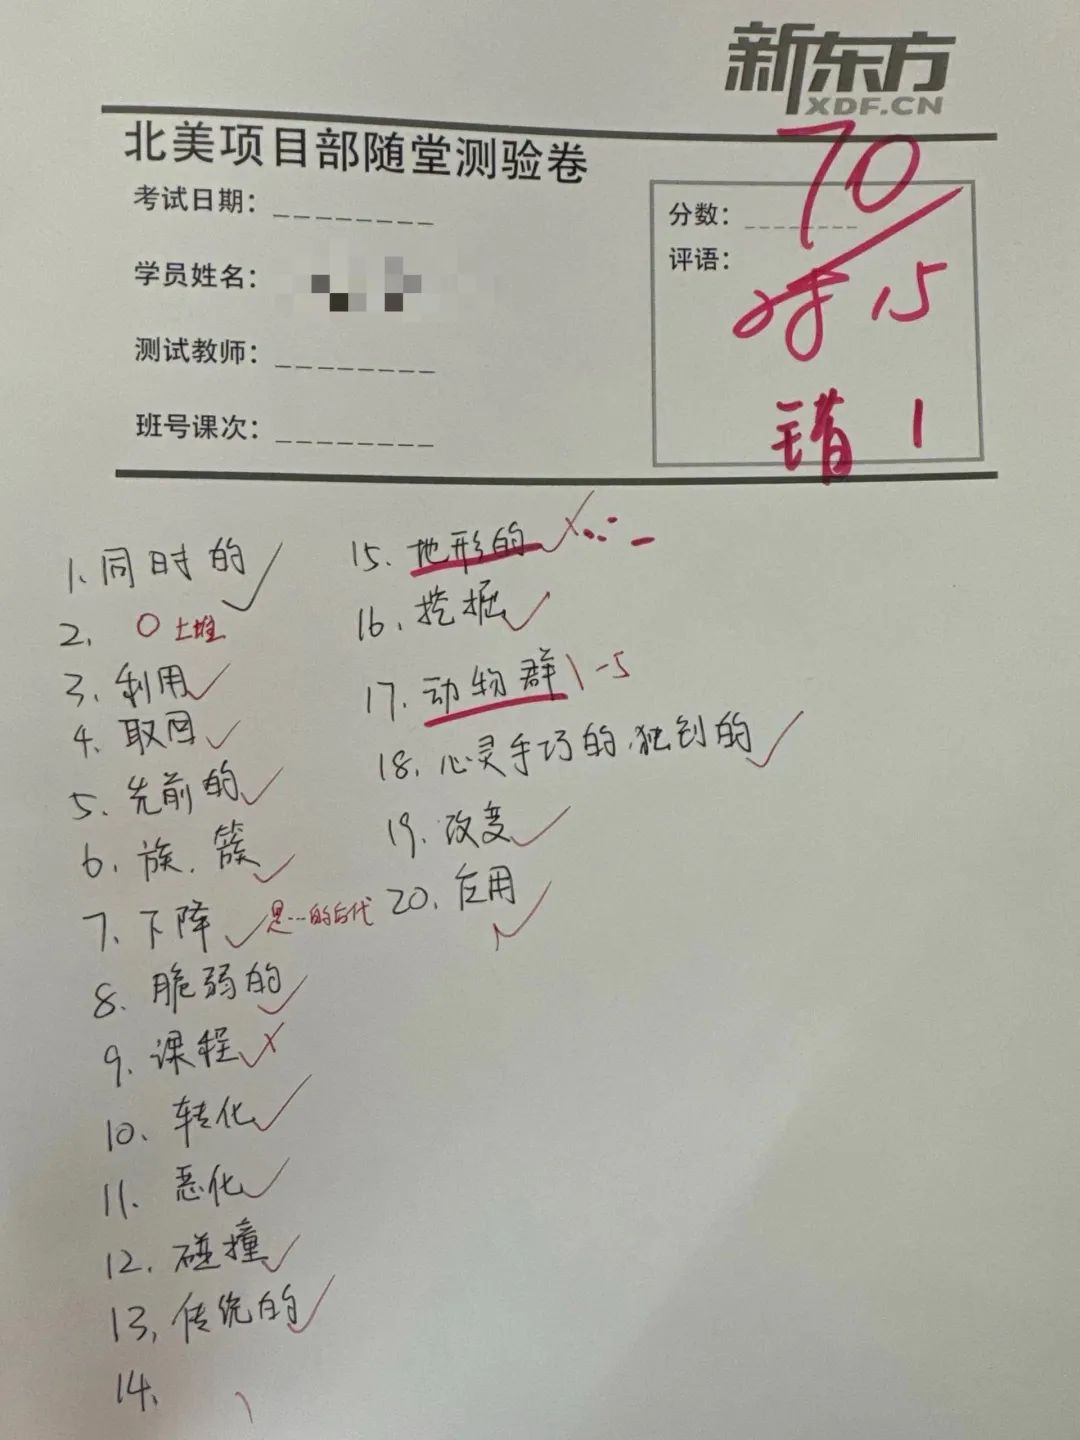 新东方
XDF.CN
北美项目部随堂测验卷
考试日期：
学员姓名：
测试教师：
班号课次：
分数：
评语：
70
对 15
错 1
1. 同时的
2. O 土堆
3. 利用
4. 取回
5. 先前的
6. 族. 簇
7. 下降 是…的后代
8. 脆弱的
9. 课程
10. 转化
11. 恶化
12. 碰撞
13. 传统的
14.
15. 地形的
16. 挖掘
17. 动物群 -5
18. 心灵手巧的.独创的
19. 改变
20. 应用